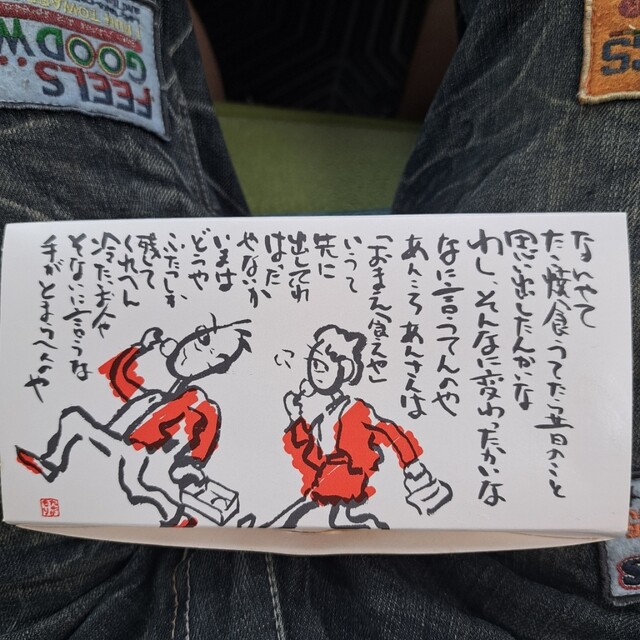 なんやて
たこ焼食うてた昔のこと
思い出したんかいな
わし、そんなに変わったかいな
なに言うてんのや
あんころあんさんは
「おまえ食えや」
いうて
先に
出してくれ
はった
やないか
いまは
どうや
ふたつしか
残して
くれへん
冷たいお人や
そないに言うな
手がとまらへんのや
FEELS...
GOOD W